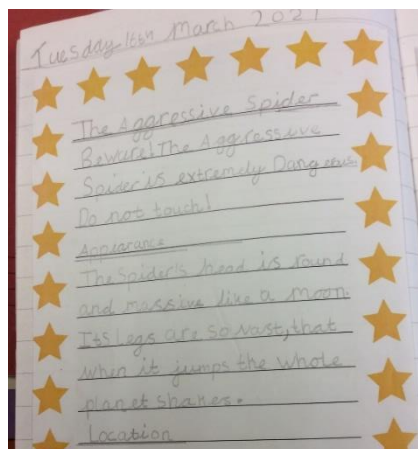 Tuesday 16th March 2021
The Aggressive Spider
Beware! The Aggressive
Spider is extremely Dangerous.
Do not touch!
Appearance
The Spider's head is round
and massive like a moon.
Its legs are so vast, that
when it jumps the whole
planet shakes.
Location